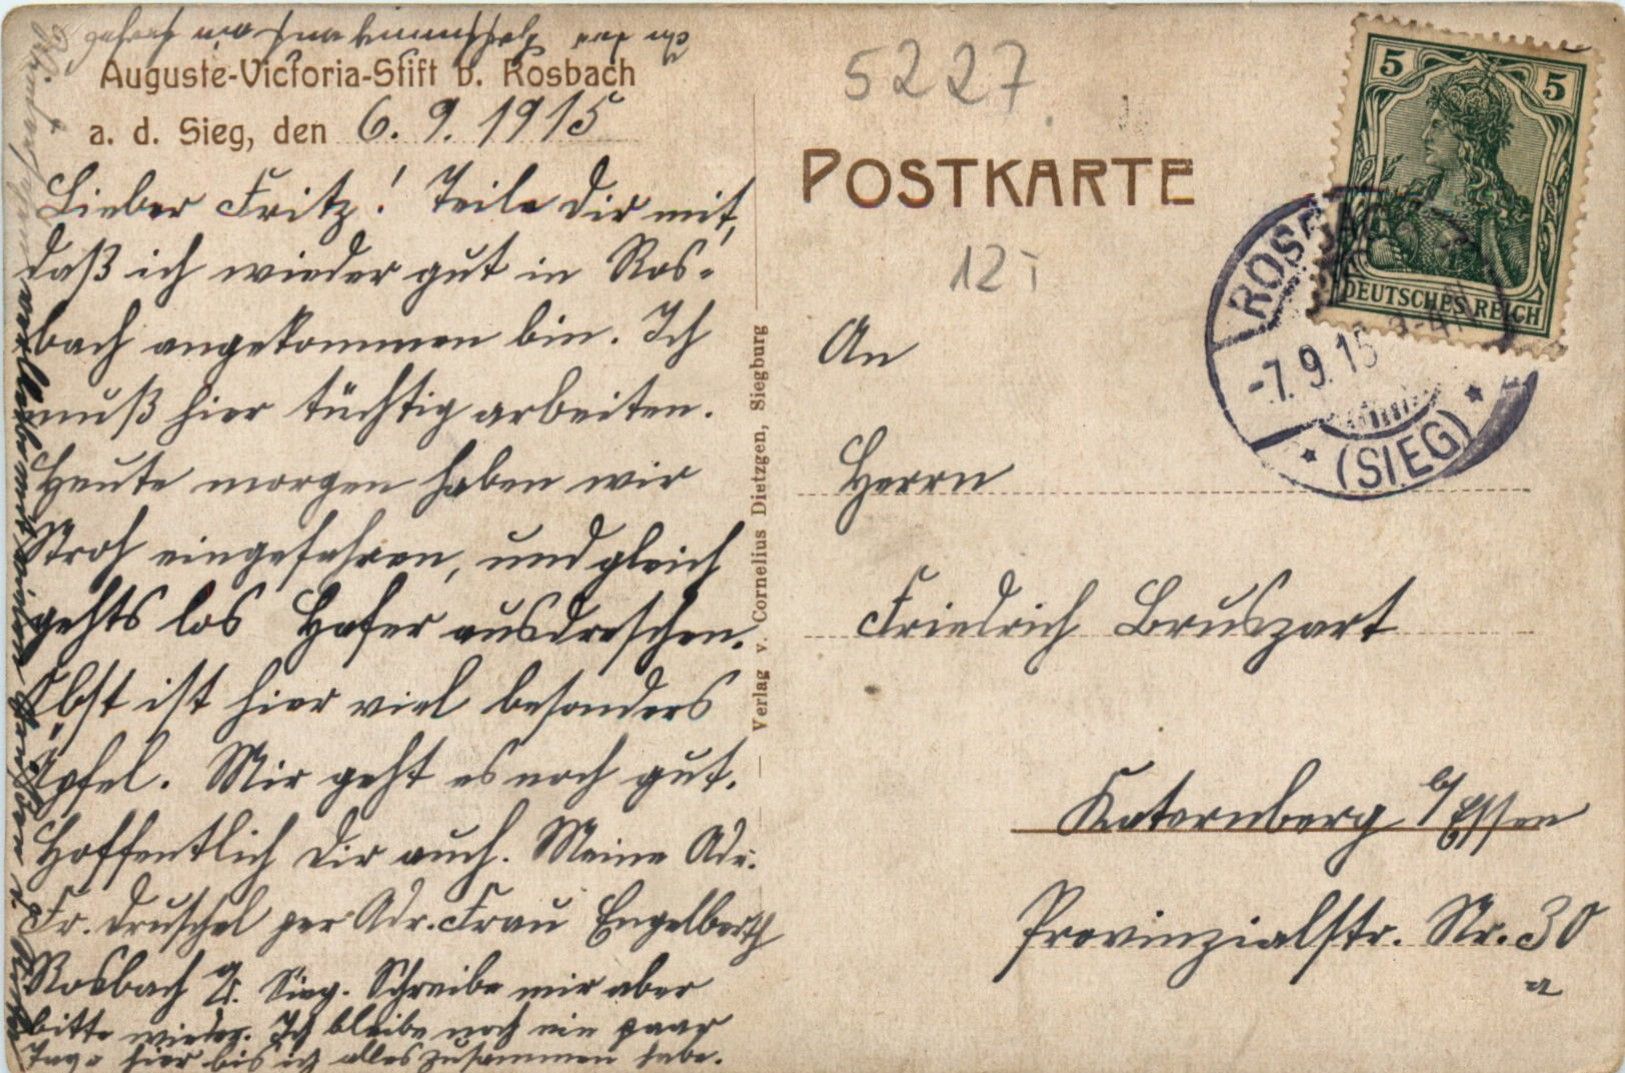 Auguste-Victoria-Stift b. Rosbach
a. d. Sieg, den 6. 9. 1915
Lieber Fritz! Teile Dir mit,
daß ich wieder gut in Ros-
bach angekommen bin. Ich
muß hier tüchtig arbeiten.
Heute morgen haben wir
Stroh eingefahren, und gleich
gehts los Hafer ausdreschen.
Obst ist hier viel besonders
Äpfel. Mir geht es noch gut.
Hoffentlich Dir auch. Meine Adr.
Fr. Druschel per Adr. Frau Engelberth
Rosbach a/d. Sieg. Schreibe mir aber
bitte wieder. Ich bleibe noch ein paar
Tage hier bis ich alles zusammen habe.
vielen
Verlag v. Cornelius Dietzgen, Siegburg
5227
POSTKARTE
12
5 5
DEUTSCHES REICH
ROSBACH
-7.9.15
(SIEG)
An
Herrn
Friedrich Bruszart
Katernberg b/Essen
Provinzialstr. Nr. 30
a